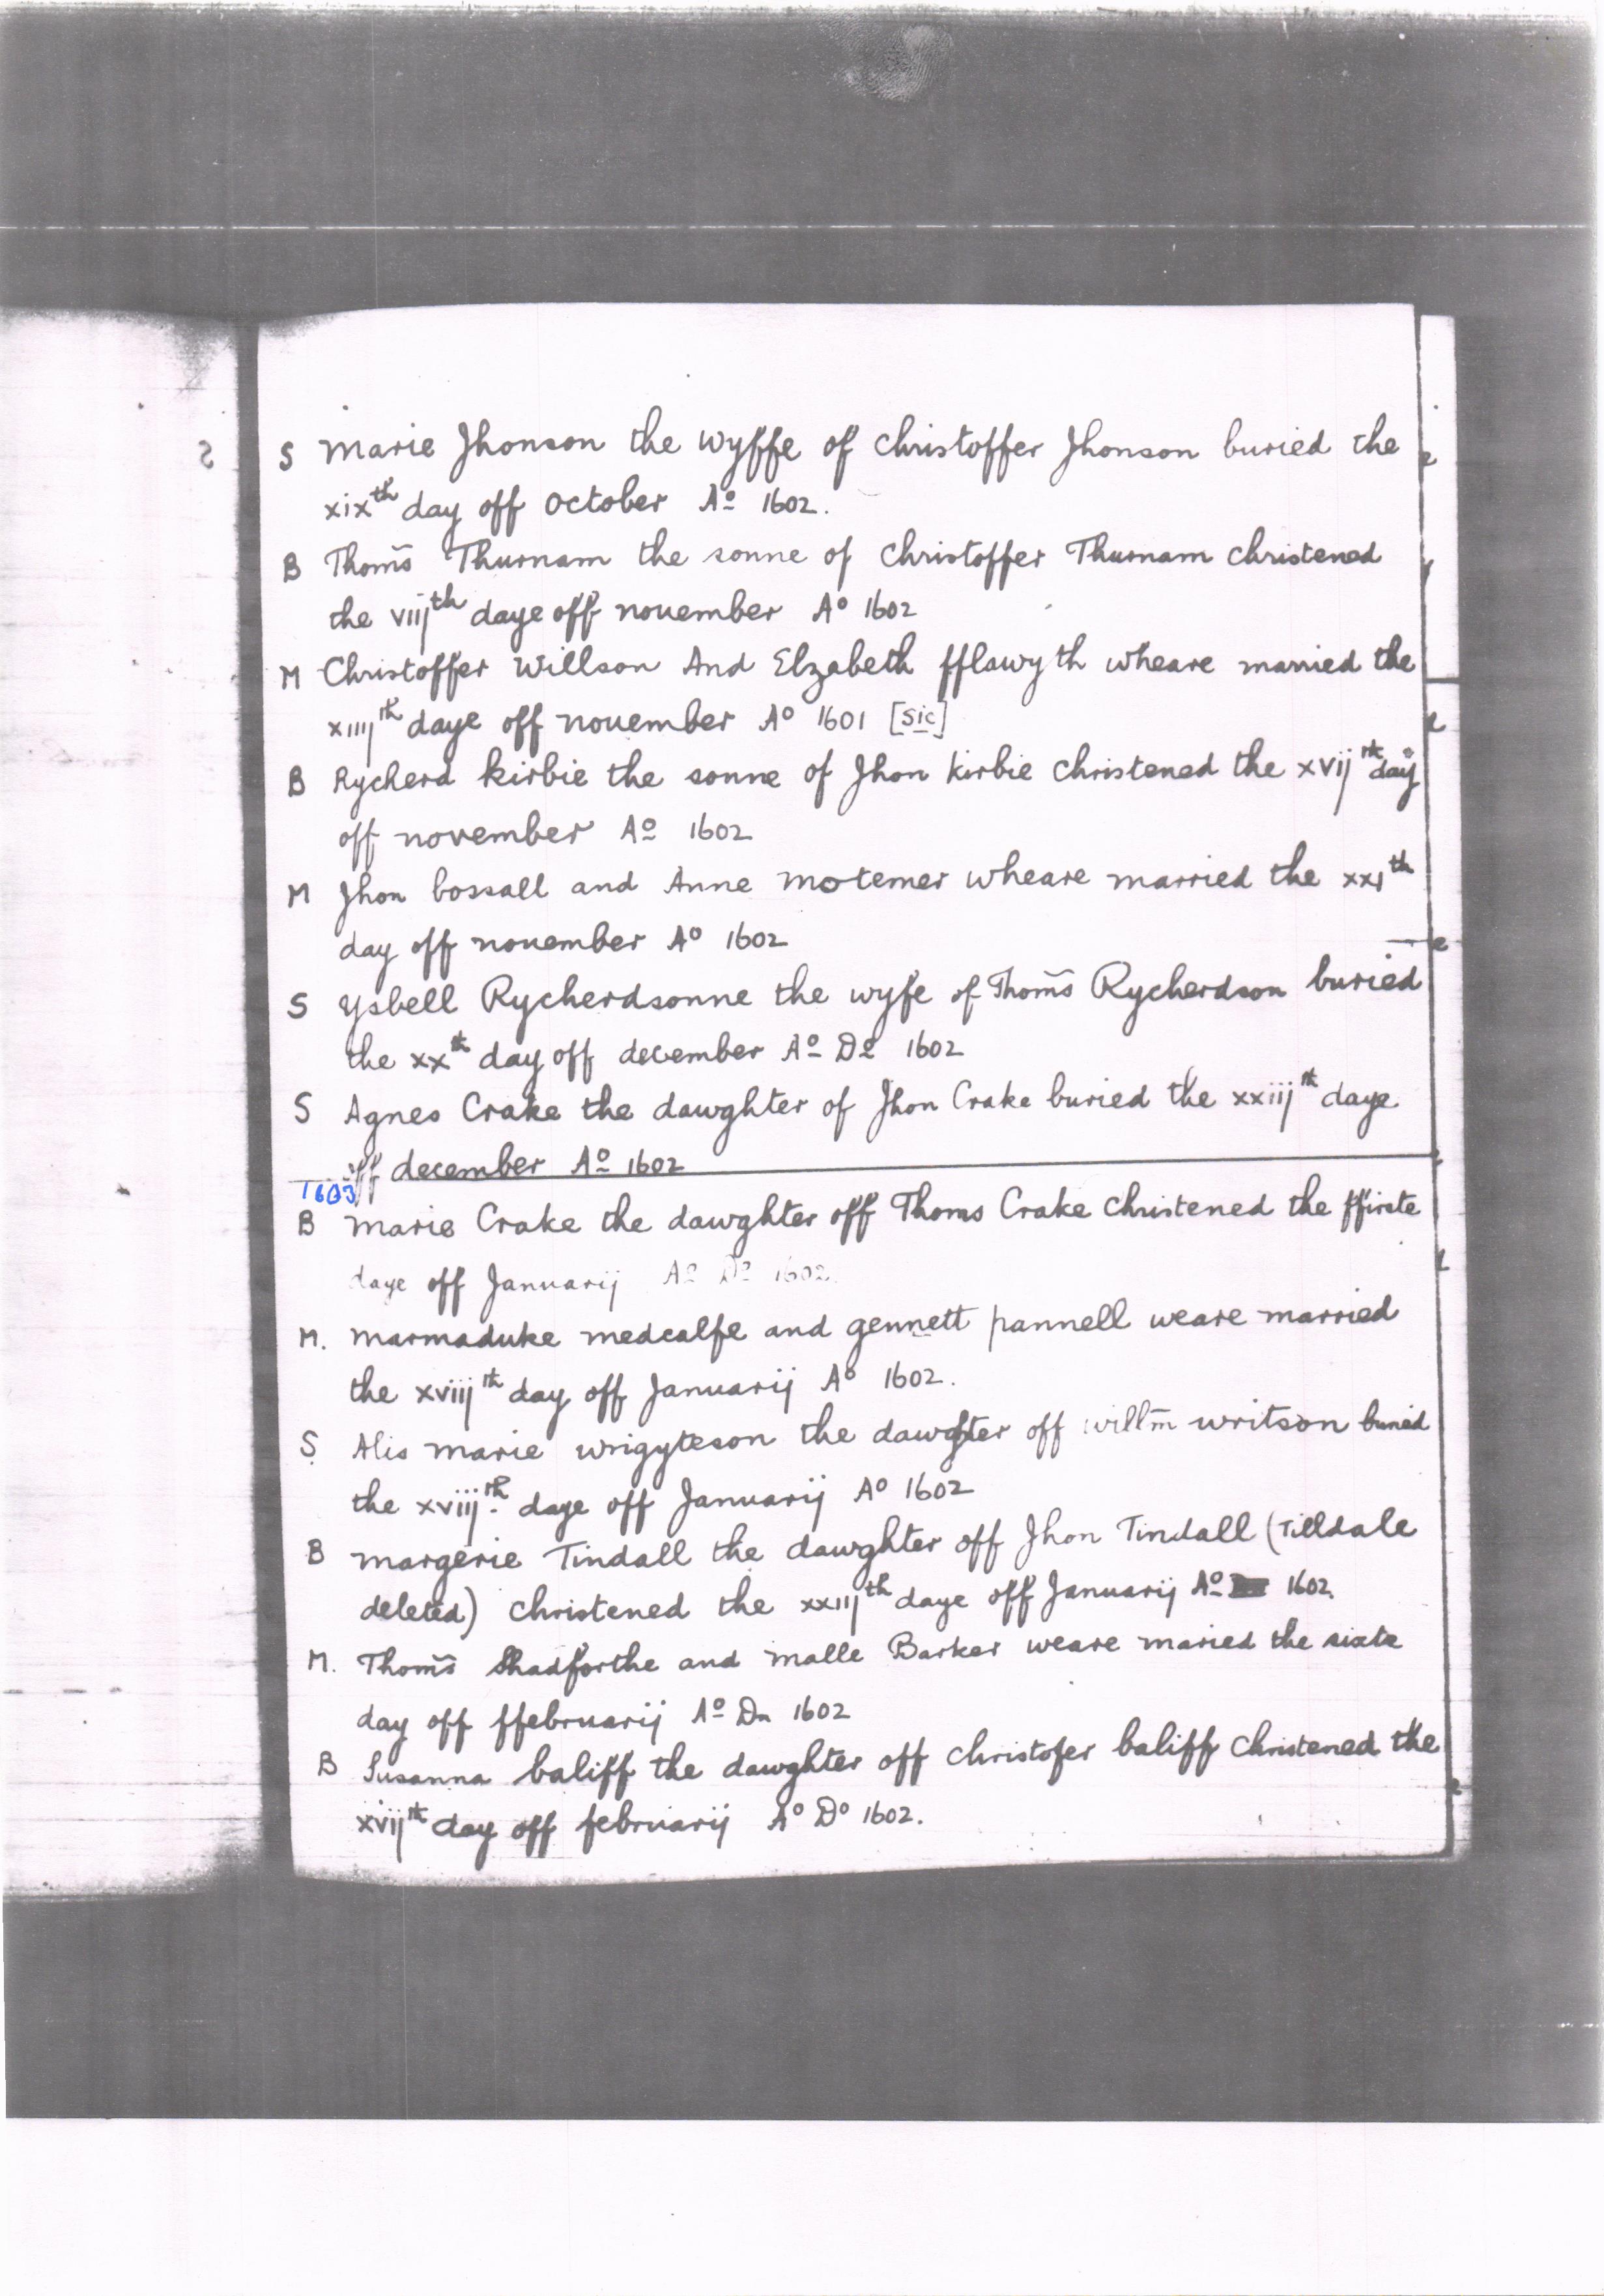 S Marie Jhonson the wyffe of christoffer Jhonson buried the
xixth day off october Aº 1602.
B Thom̃s Thurnam the sonne of christoffer Thurnam christened
the viijth daye off nouember Aº 1602
M Christoffer Willson And Elzabeth fflawyth wheare married the
xiiijth daye off nouember Aº 1601 [sic]
B Rycherd kirbie the sonne of Jhon Kirbie christened the xvijth day
off november Aº 1602
M Jhon bossall and Anne motemer wheare married the xxith
day off nouember Aº 1602
S ysbell Rycherdsonne the wyfe of Thom̃s Rycherdson buried
the xxth day off december Aº Dº 1602
S Agnes Crake the dawghter of Jhon Crake buried the xxiijth daye
off december Aº 1602
1603
B Marie Crake the dawghter off Thoms Crake christened the ffirste
daye off Januarij Aº Dº 1602.
M. Marmaduke medcalfe and gennett pannell weare married
the xviijth day off Januarij Aº 1602.
S Alis marie wrigyteson the dawghter off willm̃ writson buried
the xviijth daye off Januarij Aº 1602
B margerie Tindall the dawghter off Jhon Tindall (Tilldale
deleted) christened the xxiijth daye off Januarij Aº 1602.
M. Thom̃s Shadforthe and malle Barker weare maried the sixte
day off ffebruarij Aº Dn 1602
B Susanna baliff the dawghter off christofer baliff christened the
xvijth day off februarij Aº Dº 1602.